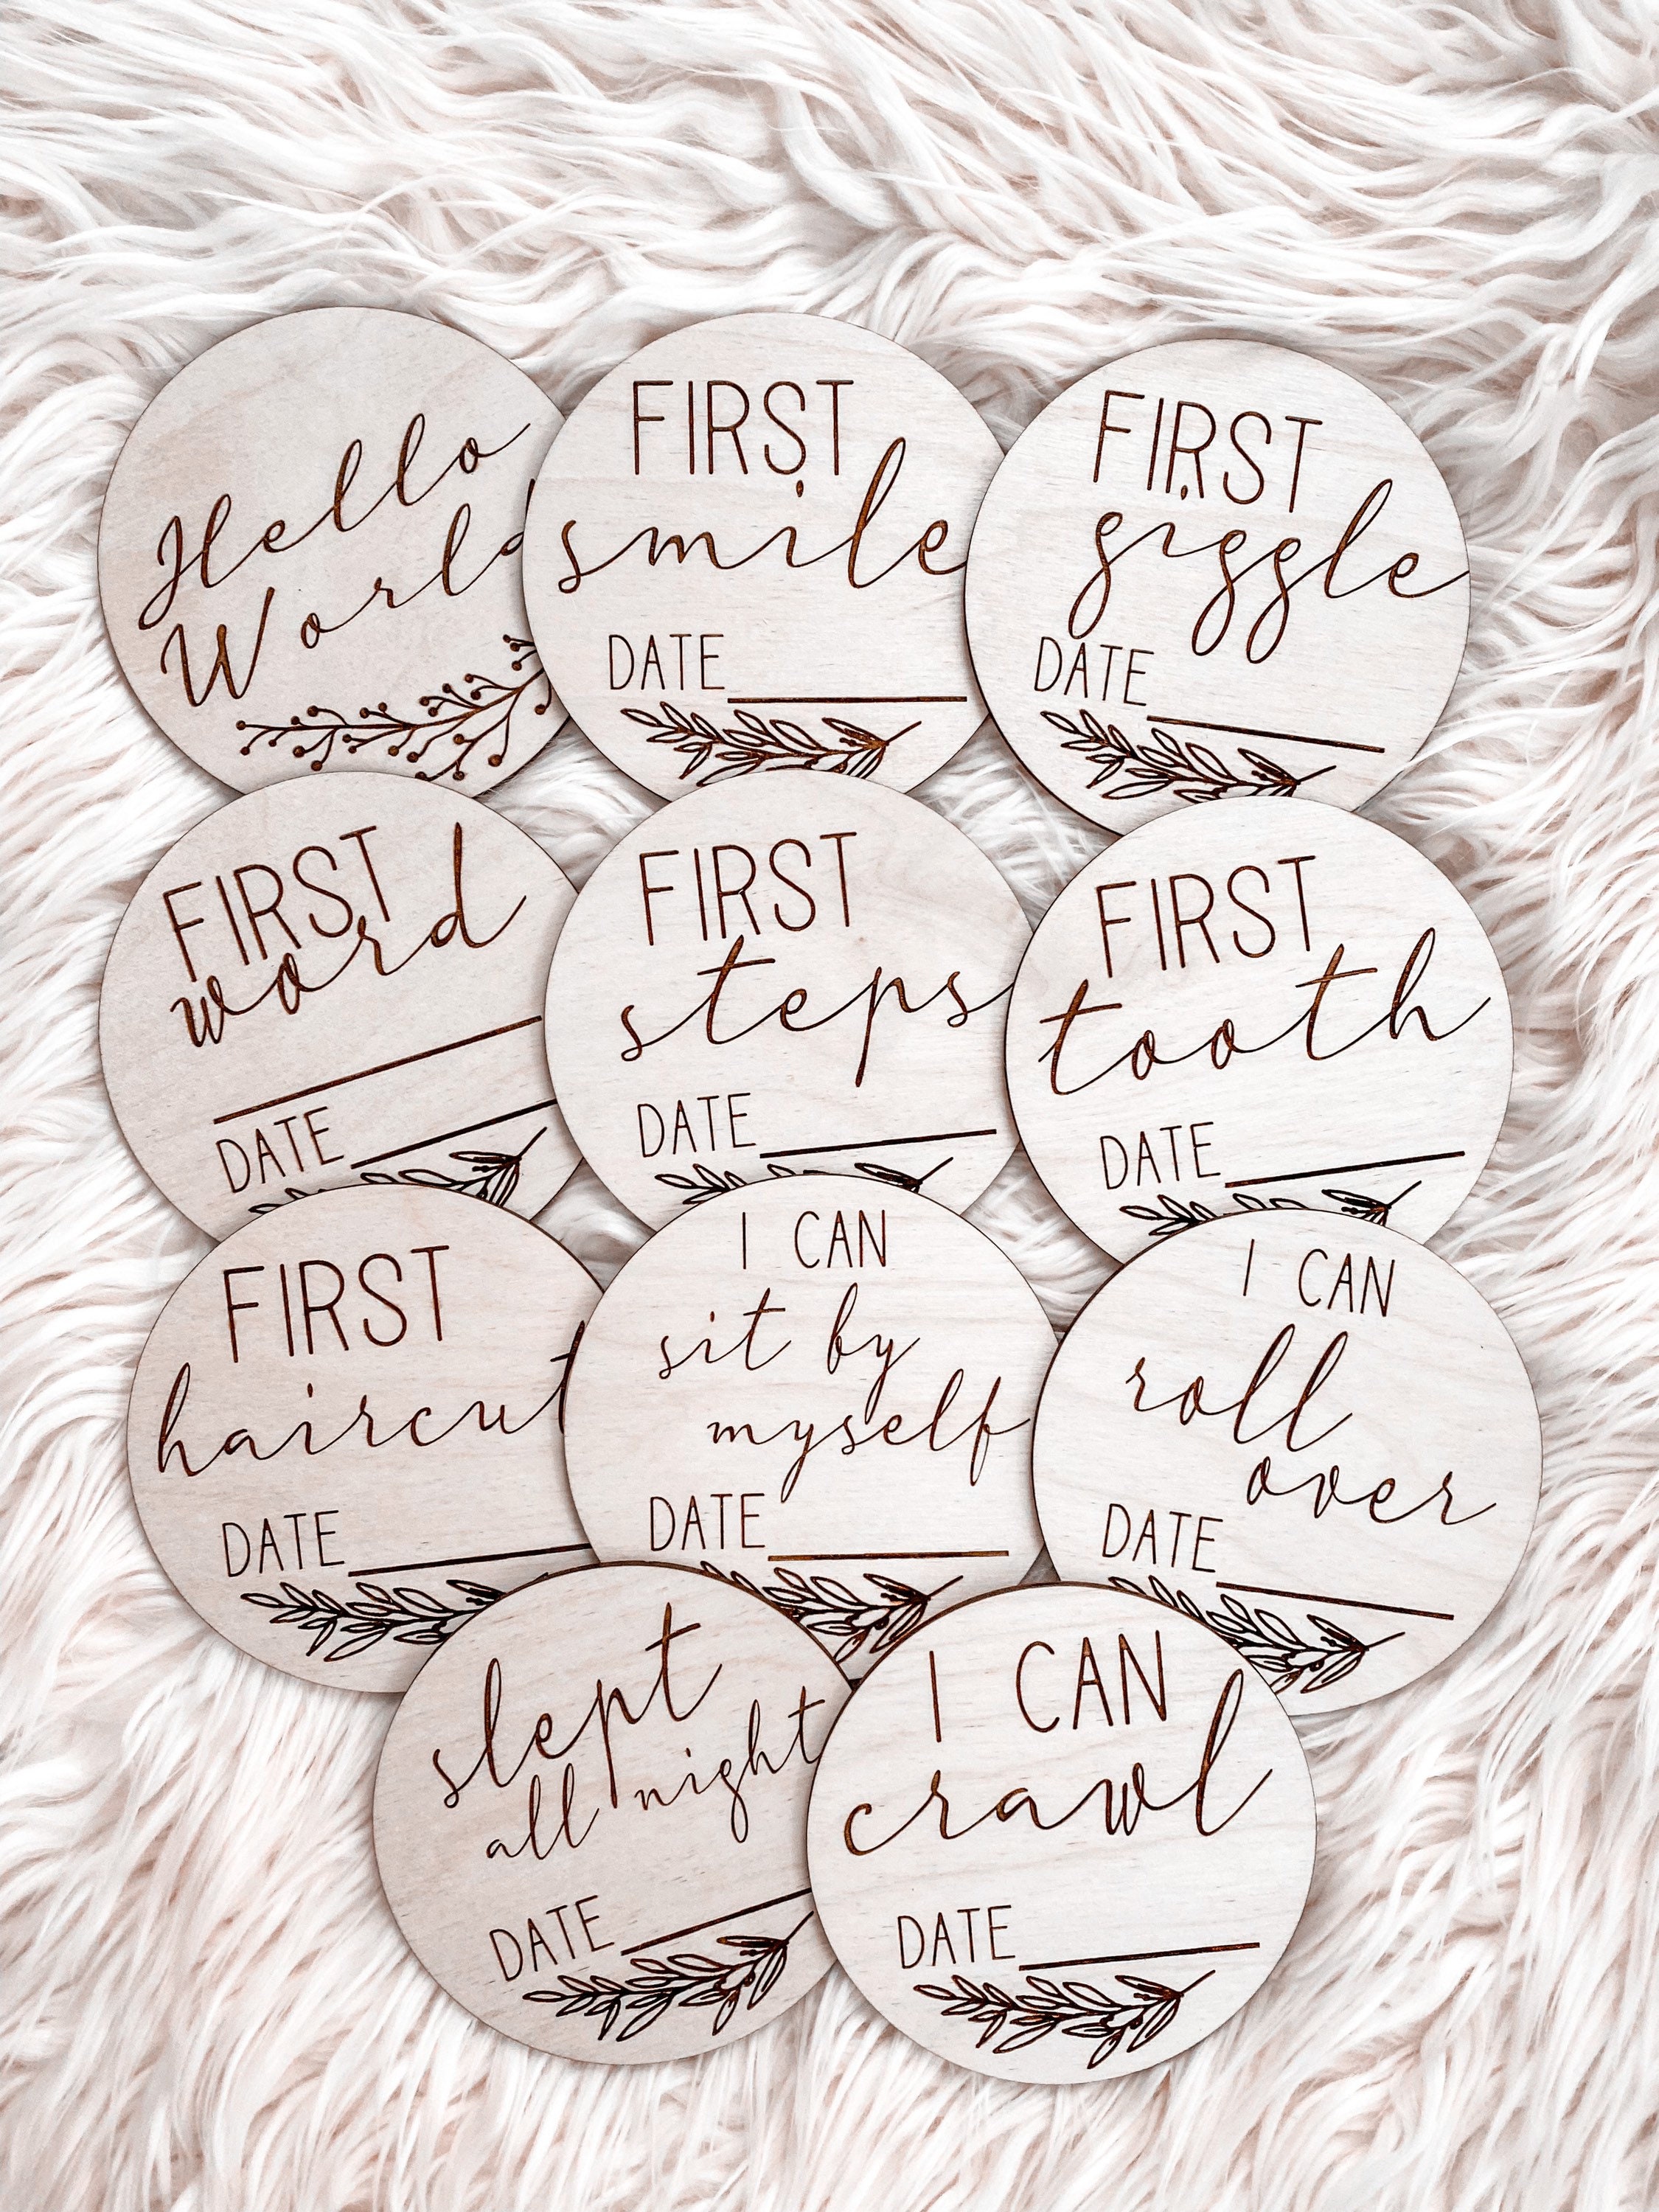 Hello
World
FIRST
smile
DATE
FIRST
giggle
DATE
FIRST
word
DATE
FIRST
steps
DATE
FIRST
tooth
DATE
FIRST
haircut
DATE
I CAN
sit by
myself
DATE
I CAN
roll
over
DATE
slept
all night
DATE
I CAN
crawl
DATE